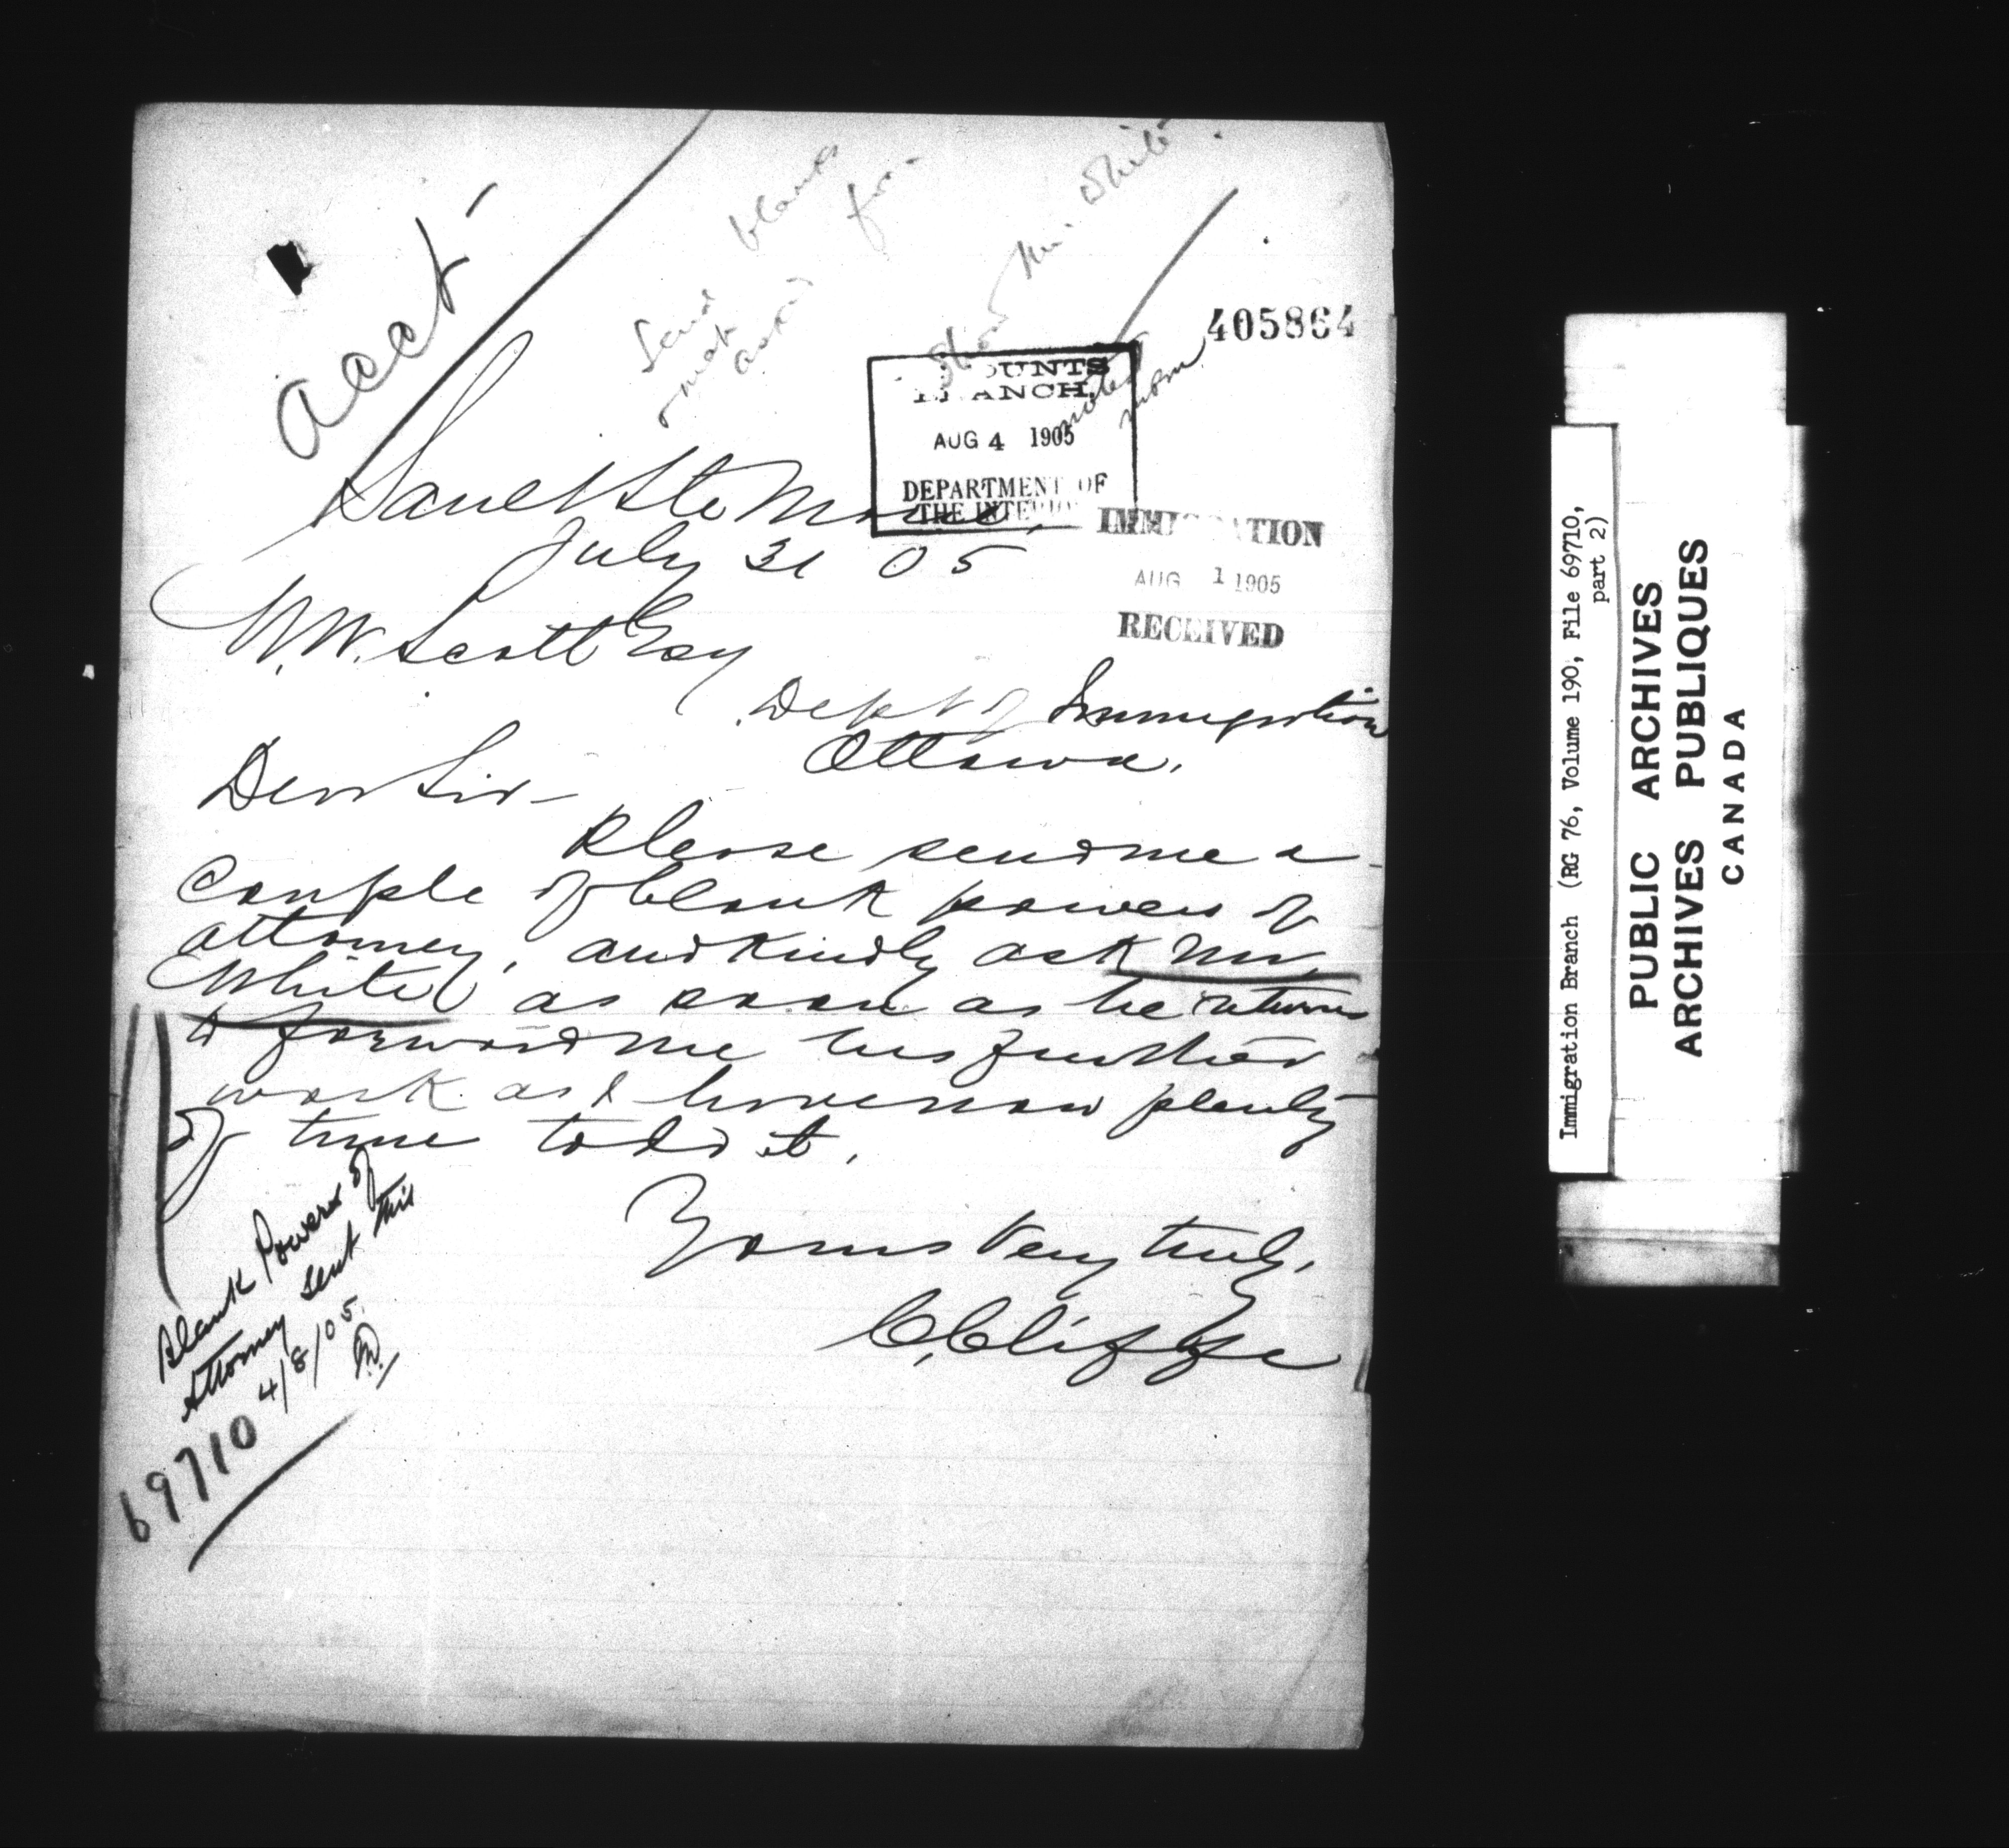 acct-
Send blanks
asked for.
Show Mr. White.
noted
405864
ACCOUNTS
BRANCH,
AUG 4 1905
DEPARTMENT OF
THE INTERIOR
Sault Ste Marie,
July 31 05
IMMIGRATION
AUG 1 1905
RECEIVED
W.W. Scott Esq
Dept of Immigration
Ottawa.
Dear Sir-
Please send me a
couple of blank powers of
attorney, and kindly ask Mr.
White as soon as he returns
to forward me his further
work as I have now plenty
of time to do it.
Yours Very truly,
C. Cliffe
Blank Powers of
Attorney sent this
4/8/05.
69710
Immigration Branch (RG 76, Volume 190, File 69710,
part 2)
PUBLIC ARCHIVES
ARCHIVES PUBLIQUES
CANADA